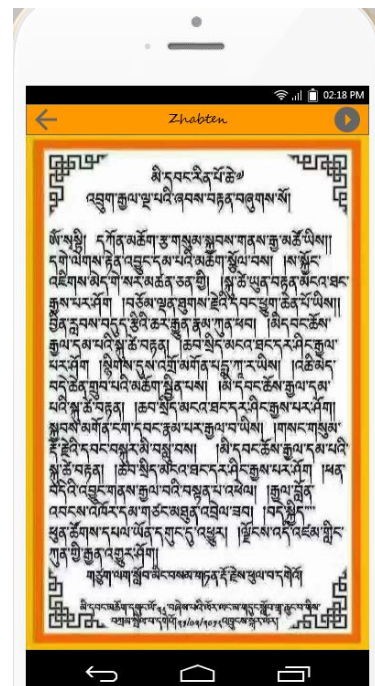 02:18 PM
Zhabten
མི་དབང་རིན་པོ་ཆེ༧
འབྲུག་རྒྱལ་ལྔ་པའི་ཞབས་བརྟན་བཞུགས་སོ།
ཨོཾ་སྭསྟི། དཀོན་མཆོག་རྩ་གསུམ་སྐྱབས་གནས་རྒྱ་མཚོ་ཡིས།།
དགེ་ལེགས་རྟེན་འབྱུང་དམ་པའི་མཆོག་སྩོལ་བས། །ས་སྐྱོང་
འཇིགས་མེད་གེ་སར་མཚན་ཅན་གྱི། །སྐུ་ཚེ་ཡུན་བརྟན་མངའ་ཐང་
རྒྱས་པར་ཤོག །བཅོམ་ལྡན་ཐུགས་རྗེའི་དབང་ཕྱུག་ཆེན་པོ་ཡིས།།
བྱིན་རླབས་བདུད་རྩིའི་ཆར་རྒྱུན་རྣམ་ཀུན་ཕབ། །མི་དབང་ཆོས་
རྒྱལ་དམ་པའི་སྐུ་ཚེ་བརྟན། །ཆབ་སྲིད་མངའ་ཐང་དར་ཞིང་རྒྱས་
པར་ཤོག །སྙིགས་དུས་འགྲོ་མགོན་པདྨ་ཀཱ་ར་ཡིས། །འཆི་མེད་
བདེ་ཆེན་གྲུབ་པའི་མཆོག་སྦྱིན་པས། །མི་དབང་ཆོས་རྒྱལ་དམ་
པའི་སྐུ་ཚེ་བརྟན། །ཆབ་སྲིད་མངའ་ཐང་དར་ཞིང་རྒྱས་པར་ཤོག།
སྐྱབས་མགོན་ངག་དབང་རྣམ་པར་རྒྱལ་བ་ཡིས། །གསང་གསུམ་
རྡོ་རྗེའི་དབང་བསྐུར་མི་བསླུ་བས། །མི་དབང་ཆོས་རྒྱལ་དམ་པའི་
སྐུ་ཚེ་བརྟན། །ཆབ་སྲིད་མངའ་ཐང་དར་ཞིང་རྒྱས་པར་ཤོག །ཕན་
བདེའི་འབྱུང་གནས་རྒྱལ་བའི་བསྟན་པ་འཕེལ། །རྒྱལ་བློན་
འབངས་འཁོར་དམ་གཙང་མཐུན་འབྲེལ་ཟབ། །བདེ་སྐྱིད་
ཕུན་ཚོགས་དཔལ་ཡོན་དགུང་དུ་འཕྱུར། །ལྗོངས་འདི་འཛམ་གླིང་
ཀུན་གྱི་རྒྱན་འགྱུར་ཤོག།